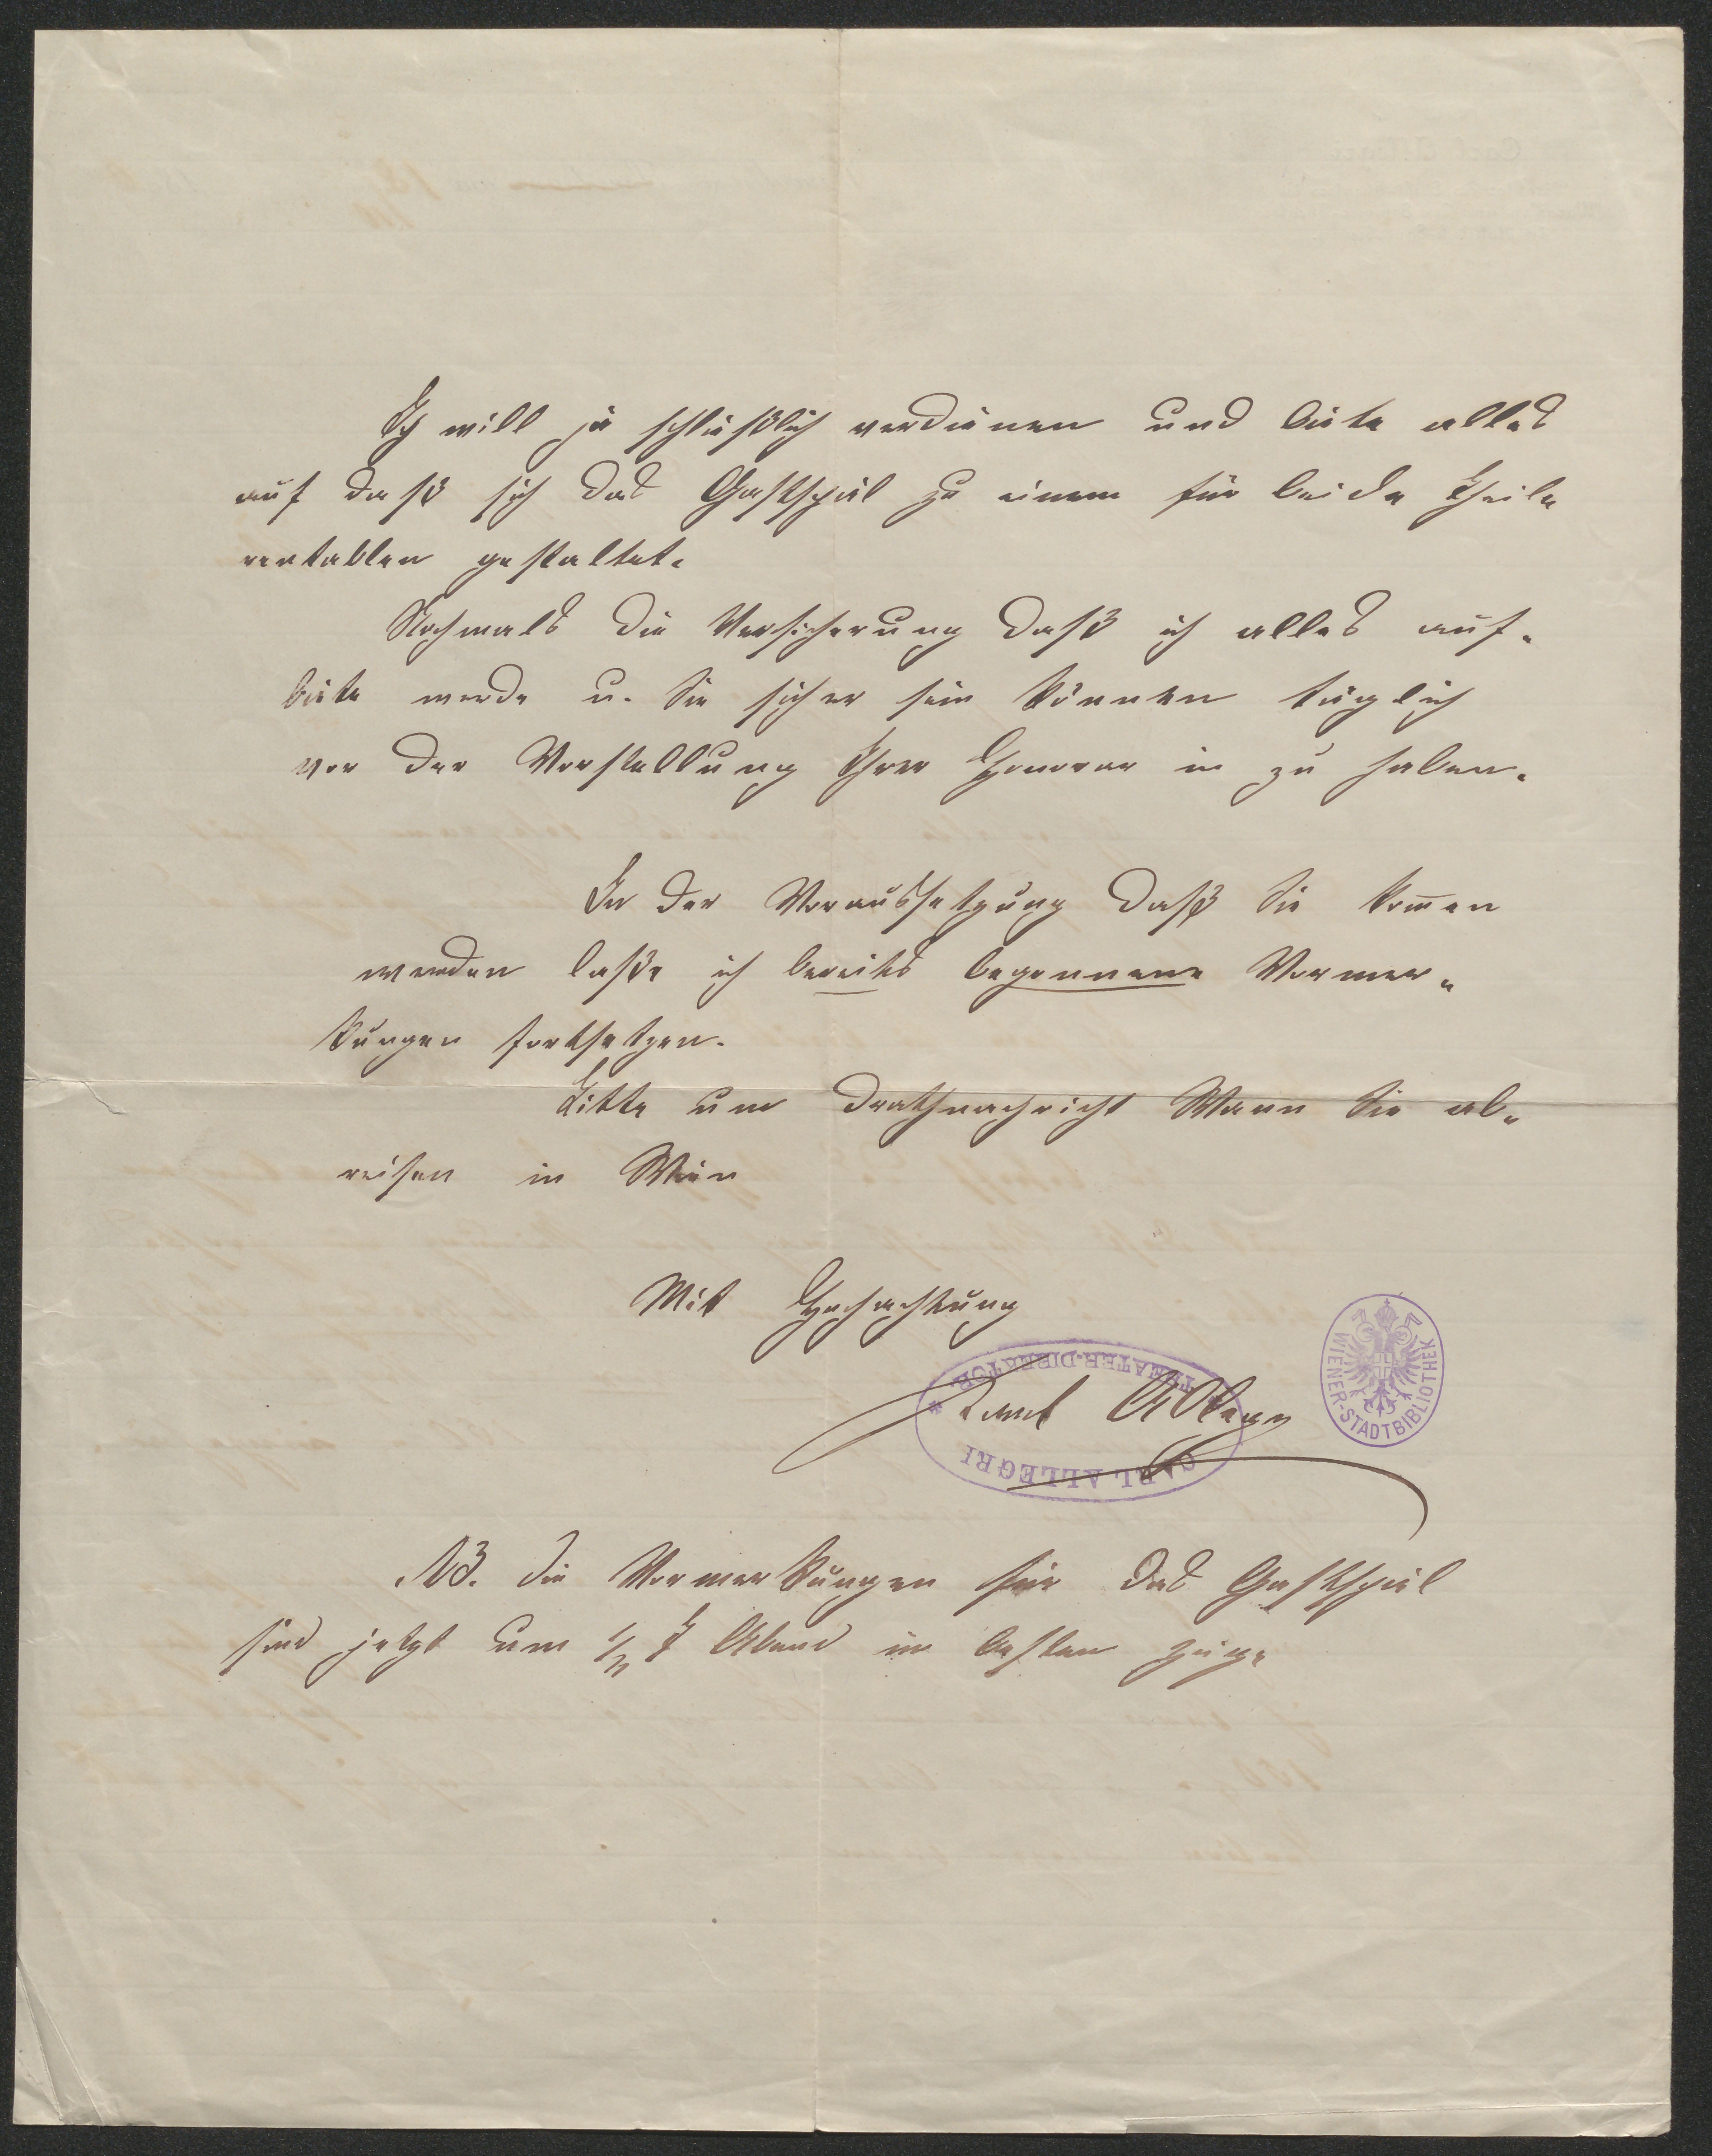 Ich will ja schließlich verdienen und biete alles
auf daß sich das Gastspiel zu einem für beide Theile
rentablen gestaltet.
Nochmals die Versicherung daß ich alles auf-
biete werde u. Sie sicher sein können täglich
vor der Vorstellung Ihrer Honorar in zu haben.
In der Voraussetzung daß Sie kom̄en
werden laße ich bereits begonnene Vormer-
kungen fortsetzen.
Bitte um Drathnachricht Wann Sie ab-
reisen in Wien
Mit Hochachtung
Carl Allegri
THEATER-DIREKTOR
CARL ALLEGRI
WIENER-STADTBIBLIOTHEK
NB. Die Vormerkungen für das Gastspiel
sind jetzt um 1/2 7 Abend im besten Zuge